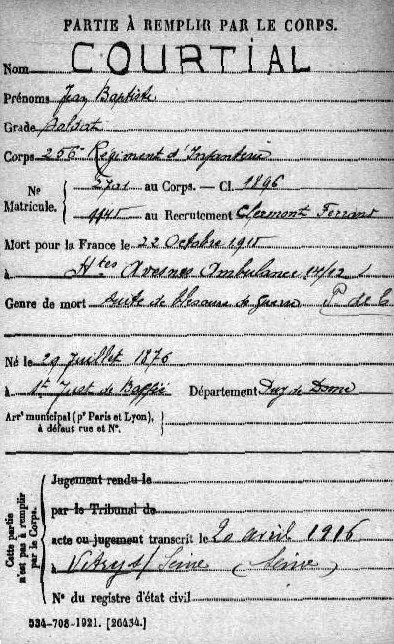 PARTIE À REMPLIR PAR LE CORPS.
Nom COURTIAL
Prénoms Jean Baptiste
Grade Soldat
Corps 256e Régiment d'Infanterie
Nº Matricule.
au Corps. — Cl. 1896
au Recrutement Clermont Ferrand
Mort pour la France le 22 Octobre 1915
à Htes Avesnes Ambulance 14/12
Genre de mort suite de blessure de Guerre P. de C
Né le 29 Juillet 1876
à St Just de Baffie Département Puy de Dome
Arrt municipal (pr Paris et Lyon),
à défaut rue et Nº.
Cette partie n'est pas à remplir par le Corps.
Jugement rendu le
par le Tribunal de
acte ou jugement transcrit le 20 avril 1916
à Vitry s/ Seine (Seine)
Nº du registre d'état civil
534-708-1921. [26434.]